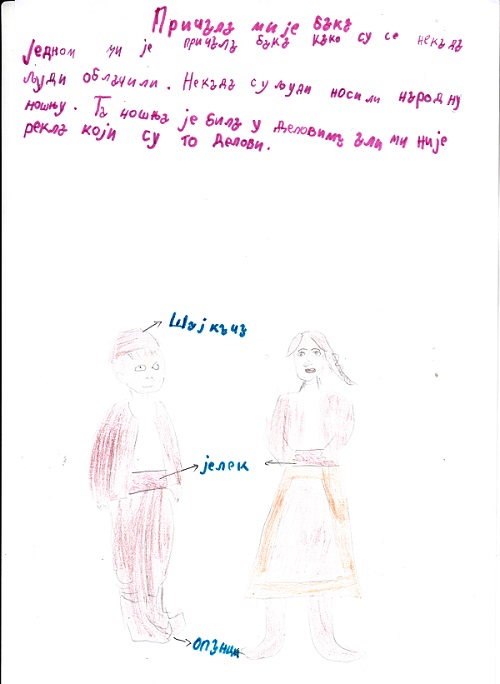 Причала ми је бака
Једном ми је причала бака како су се некада
људи облачили. Некада су људи носили народну
ношњу. Та ношња је била у деловима али ми није
рекла који су то делови.
Шајкача
јелек
опанци